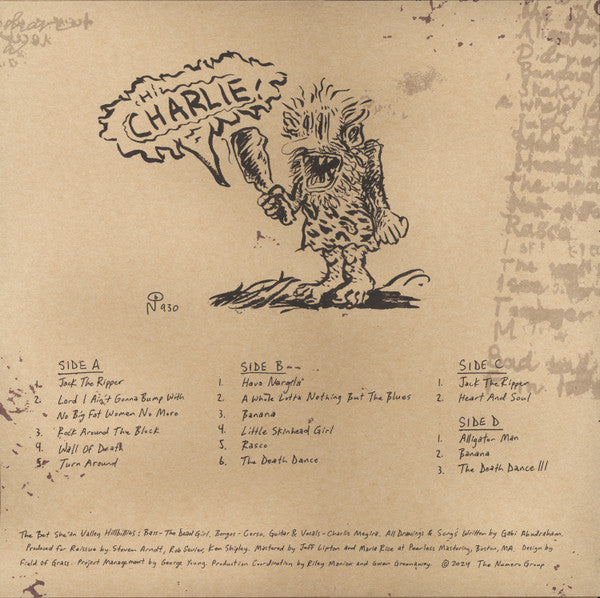 HI
CHARLIE!
930
SIDE A
Jack The Ripper
2. Lord I Ain't Gonna Bump With
No Big Fat Women No More
3. Rock Around The Block
4. Wall Of Death
5. Turn Around
SIDE B
1. Hava Nargila
2. A Whole Lotta Nothing But The Blues
3. Banana
4. Little Skinhead Girl
5. Rasco
6. The Death Dance
SIDE C
1. Jack The Ripper
2. Heart And Soul
SIDE D
1. Alligator Man
2. Banana
3. The Death Dance III
The Bet She'an Valley Hillbillies: Bass - The Dead Girl, Bongos - Corso, Guitar & Vocals - Charlie Megira. All Drawings & Songs Written by Gabi Abudraham.
Produced for Reissue by Steven Arndt, Rob Sevier, Ken Shipley. Mastered by Jeff Lipton and Maria Rice at Peerless Mastering, Boston, MA. Design by
Field of Grass. Project Management by George Young. Production Coordination by Riley Manion and Gwen Greenaway. © 2024 The Numero Group
Banana
the dea
Rasco
The wall
Teenager
Bad